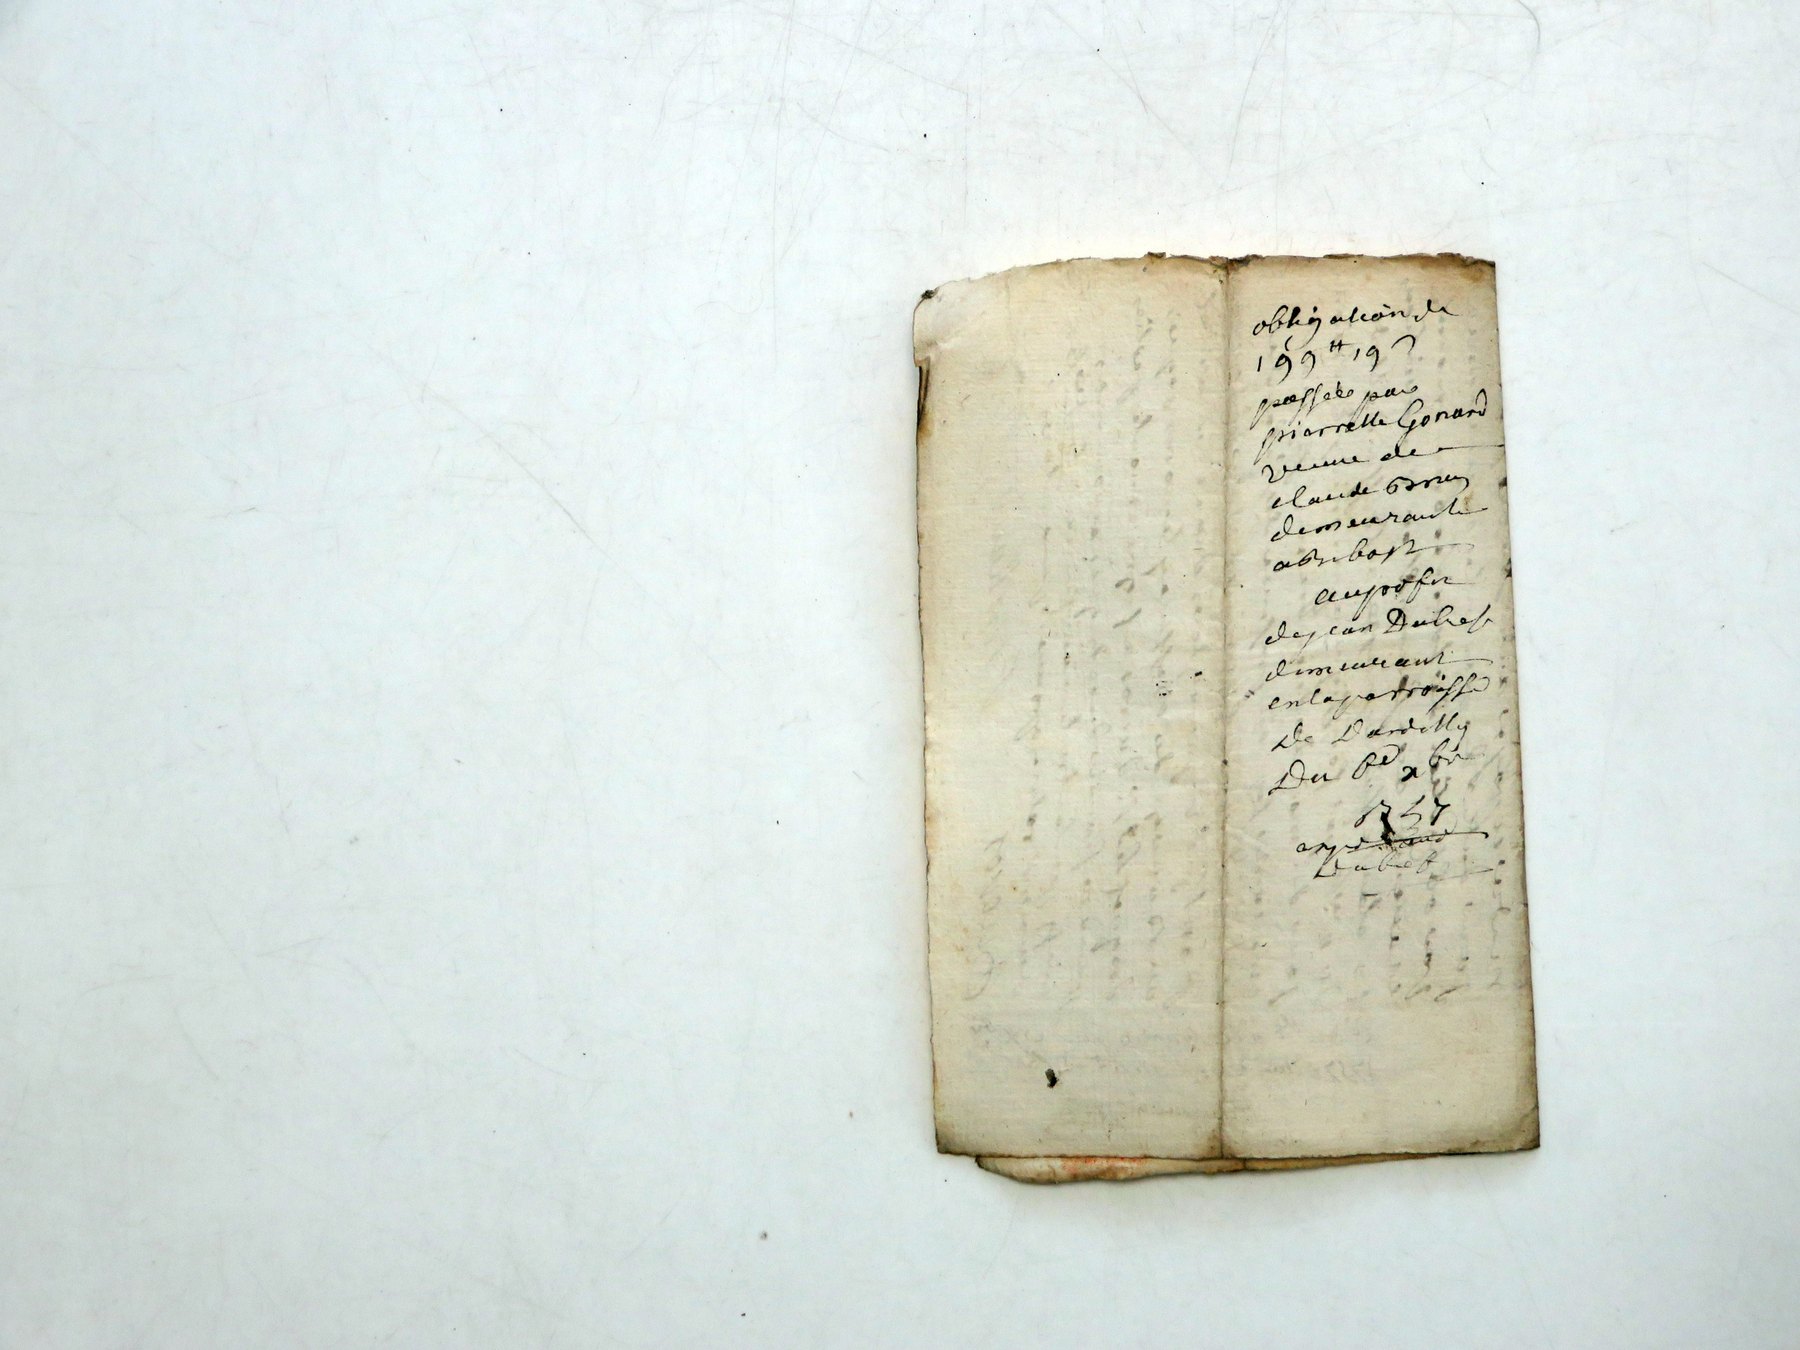 obligation de
199 ₶ 19 s
passée par
pierrette Gonard
veuve de
claude Brun
demeurante
a
au profit
de jean Dubost
demeurant
en la parroisse
De Dardilly
Du 6e xbre
1757
Dubost